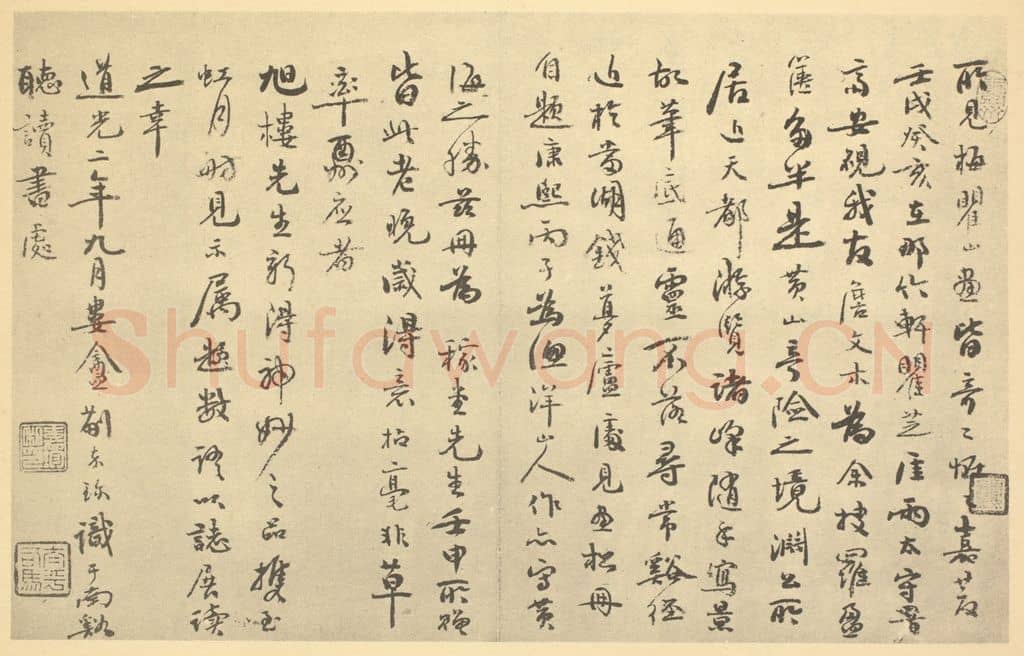 所見梅瞿山畫皆奇〻怪〻嘉慶
壬戌癸亥在那竹軒瞿芝厓兩太守署
高安硯我友詹文木為余搜羅盈
篋多半是黃山奇險之境淵公所
居近天都游覽諸峰隨手寫景
故筆底通靈不落尋常谿徑
近於當湖錢夢廬處見畫松冊
自題康熙丙子為漁洋山人作亦寫黃
海之勝茲冊為稼堂先生壬申所繪
皆此老晚歲得意拈毫非草
率酬應者
旭樓先生新得神妙之品攜至
虹月舫見示屬題數語以誌展讀
之幸
道光二年九月婁盦識于南谿
聽讀書處
Shufawang.CN